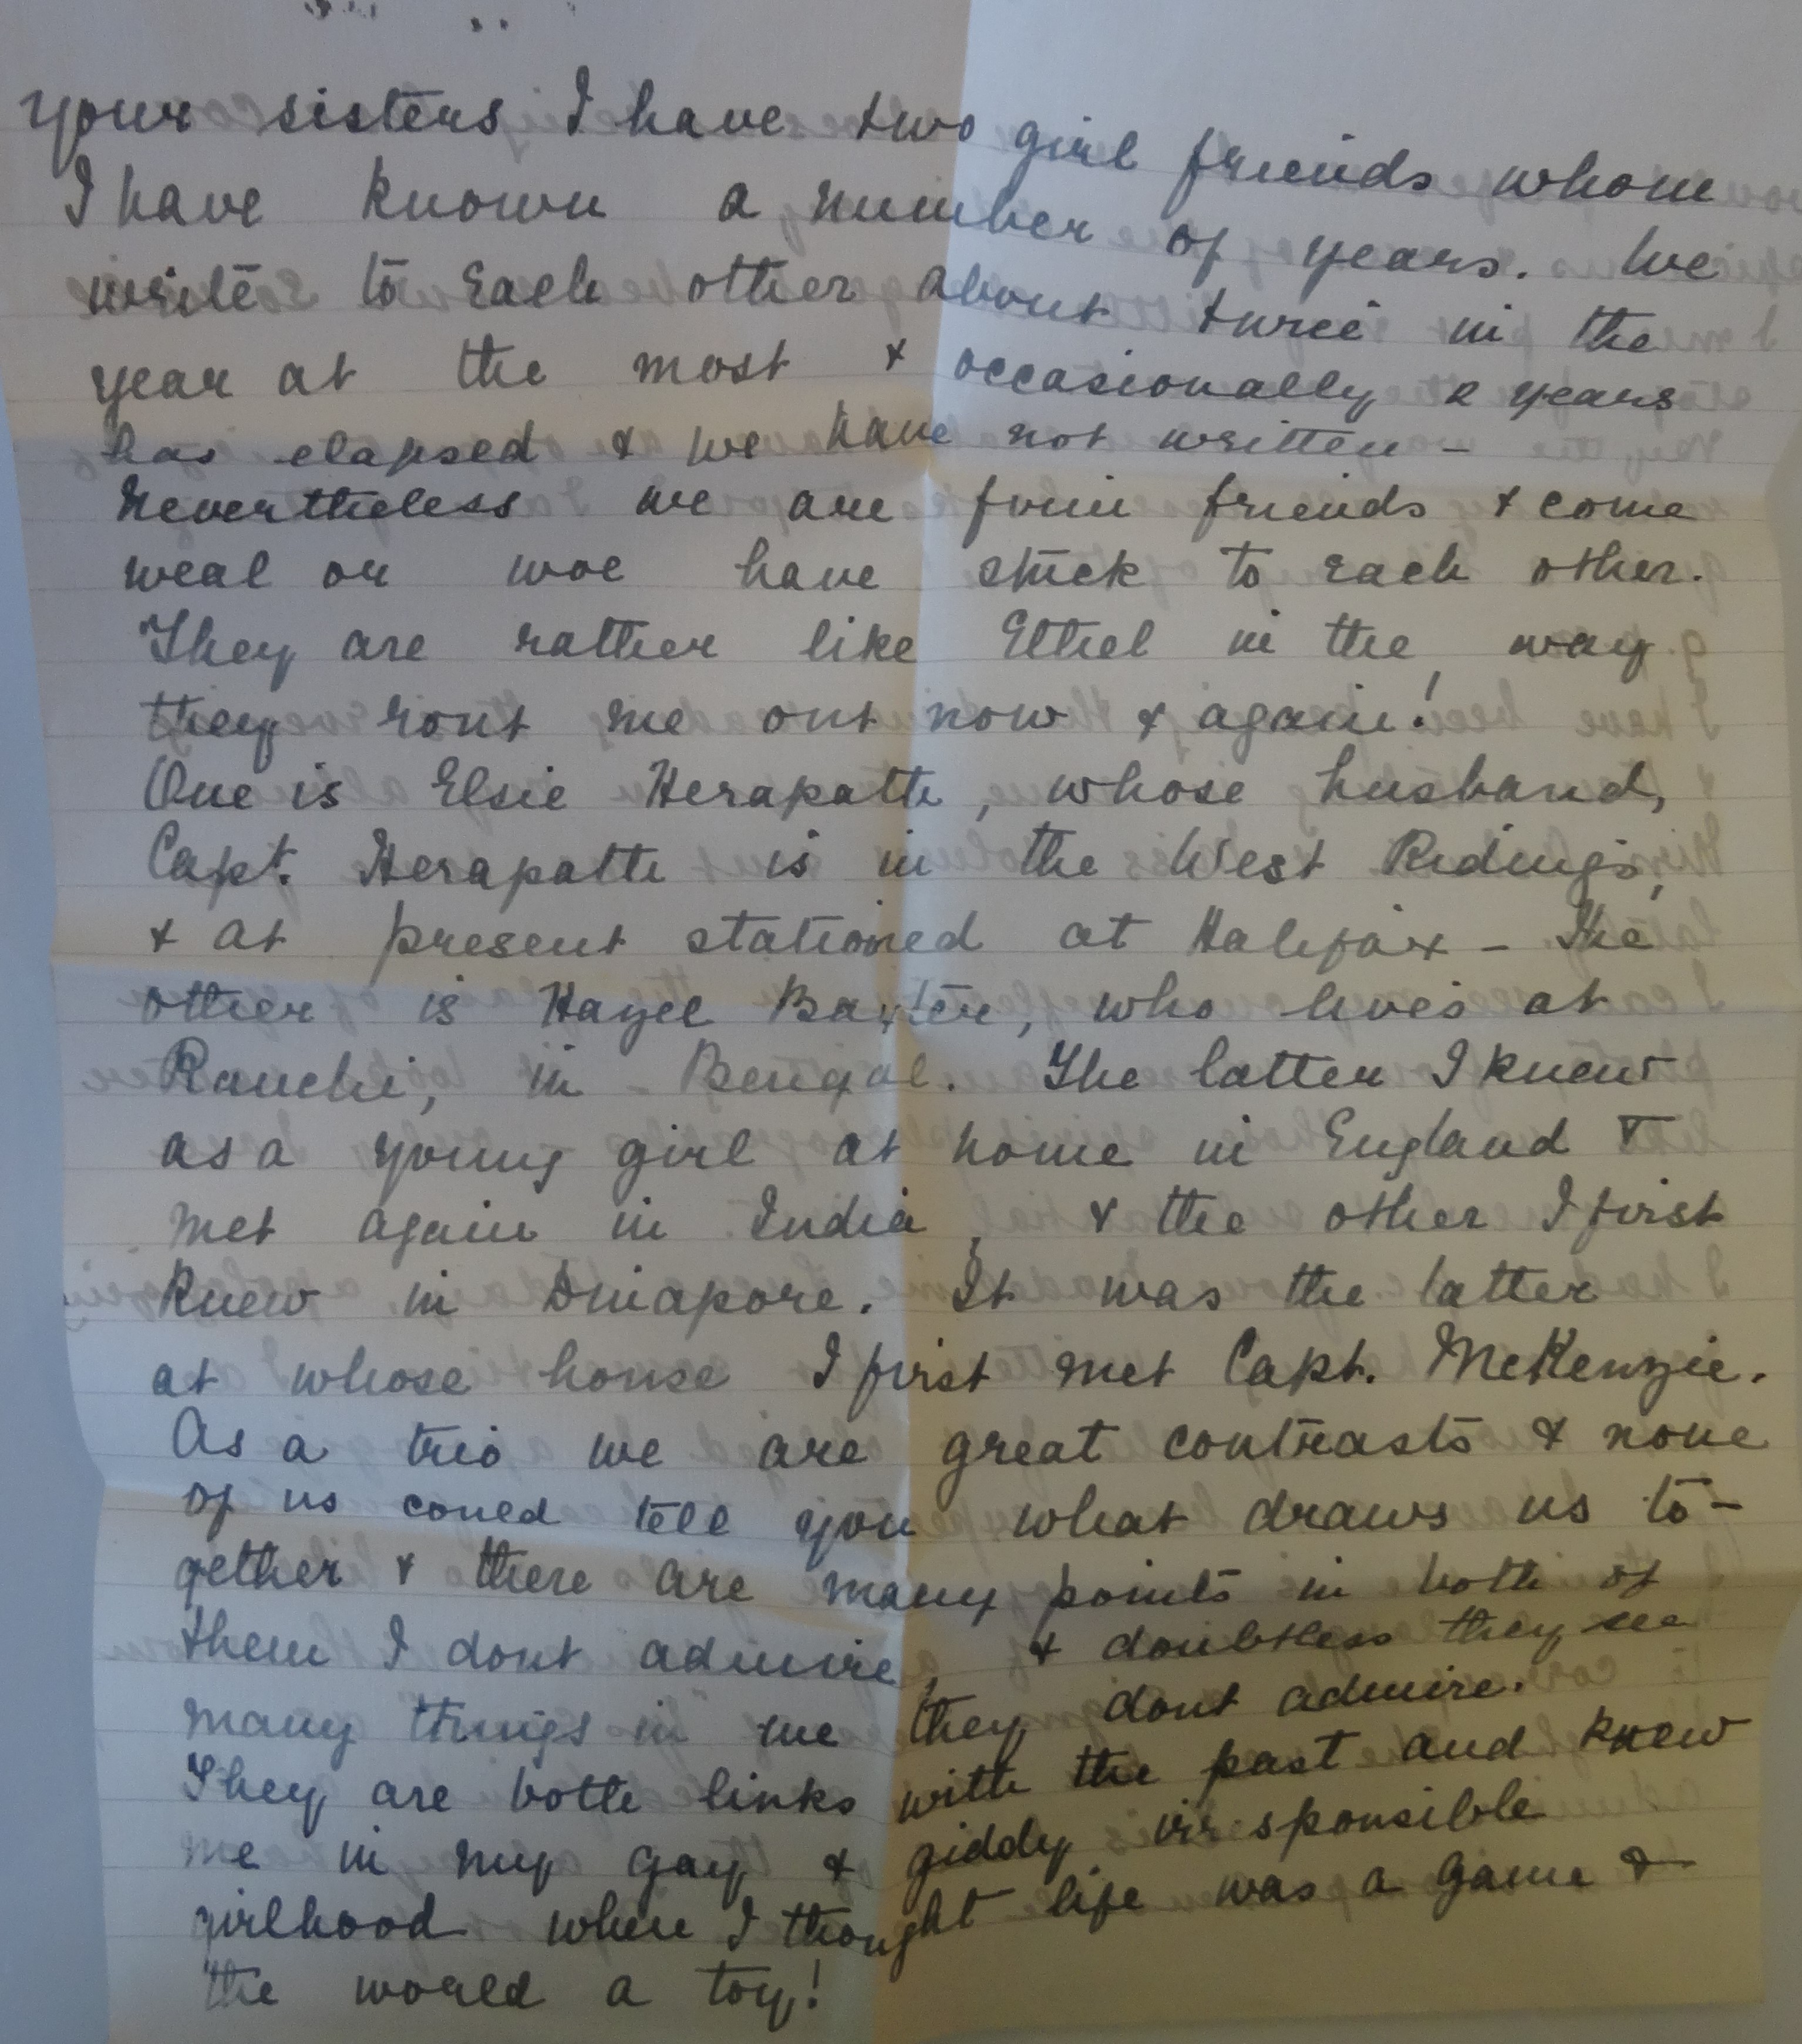 your sisters I have two girl friends whom
I have known a number of years. We
write to each other about twice in the
year at the most & occasionally 2 years
has elapsed & we have not written –
Nevertheless we are firm friends & come
weal or woe have stuck to each other.
They are rather like Ethel in the way
they rout me out now & again!
One is Elsie Herapath, whose husband,
Capt. Herapath is in the West Ridings,
& at present stationed at Halifax – The
other is Hazel Baxter, who lives at
Ranchi, in Bengal. The latter I knew
as a young girl at home in England &
met again in India, & the other I first
knew in Dinapore. It was the latter
at whose house I first met Capt. McKenzie.
As a trio we are great contrasts & none
of us could tell you what draws us to-
gether & there are many points in both of
them I dont admire, & doubtless they see
many things in me they dont admire.
They are both links with the past and knew
me in my gay & giddy irrisponsible
girlhood when I thought life was a game &
the world a toy!